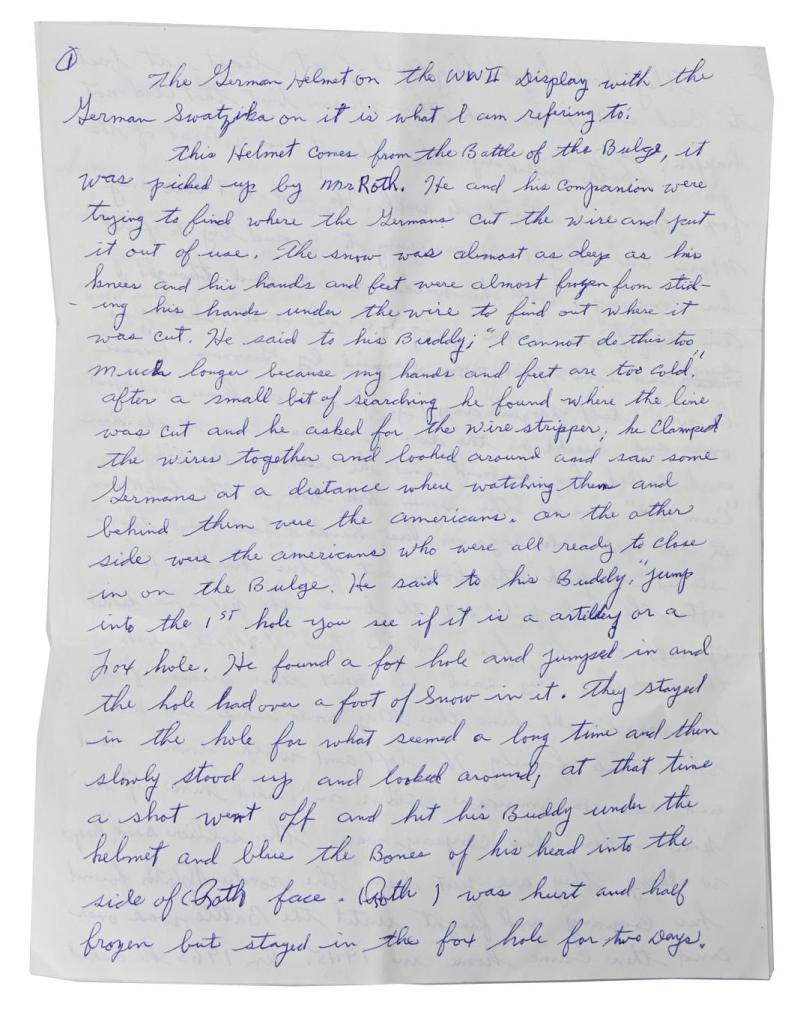 1
The German Helmet on the WWII Display with the
German Swatzika on it is what I am refering to.
This Helmet comes from the Battle of the Bulge, it
was picked up by Mr Roth. He and his companion were
trying to find where the Germans cut the wire and put
it out of use. The snow was almost as deep as his
knees and his hands and feet were almost frozen from slid-
ing his hands under the wire to find out where it
was cut. He said to his Buddy; "I cannot do this too
much longer because my hands and feet are too cold."
after a small bit of searching he found where the line
was cut and he asked for the wire stripper, he Clamped
the wires together and looked around and saw some
Germans at a distance where watching them and
behind them were the americans. on the other
side were the americans who were all ready to close
in on the Bulge. He said to his Buddy, "jump
into the 1ST hole you see if it is a artillery or a
Fox hole. He found a fox hole and jumped in and
the hole had over a foot of Snow in it. They stayed
in the hole for what seemed a long time and then
slowly stood up and looked around, at that time
a shot went off and hit his Buddy under the
helmet and blue the Bones of his head into the
side of (Roth face. (Roth) was hurt and half
frozen but stayed in the fox hole for two Days.